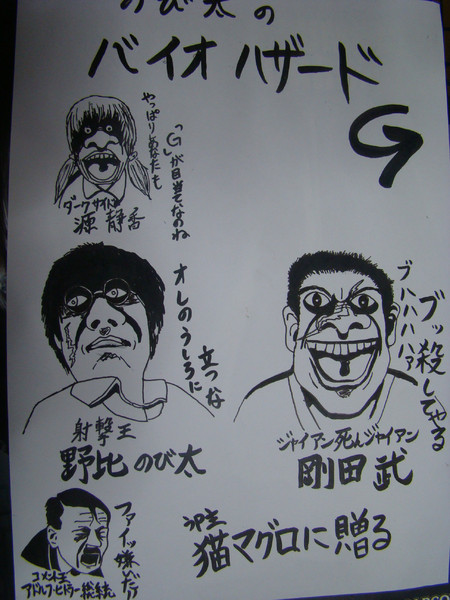 のび太の
バイオハザード
G
やっぱりあなたも
「G」が目当てなのね
ダークサイド
源静香
オレのうしろに
立つな
射撃王
野比のび太
ブハハハハァ
ブッ殺してやる
ジャイアン死んジャイアン
剛田武
ファイッ嫌だ
コメント王
アドルフ・ヒトラー総統
UP主
猫マグロに贈る